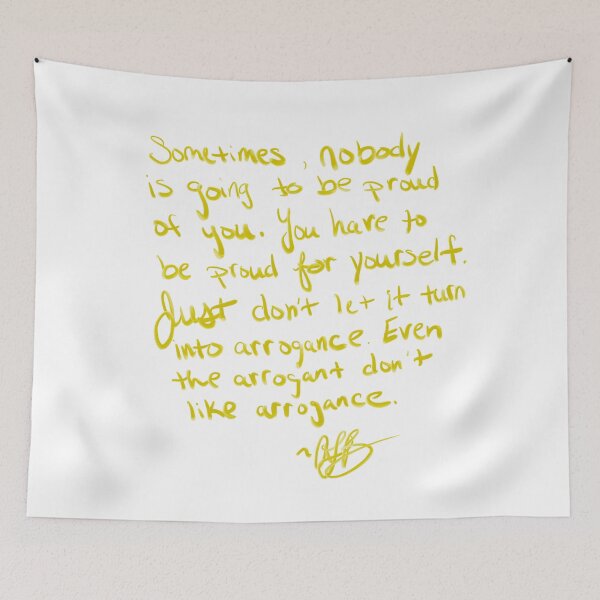 Sometimes, nobody
is going to be proud
of you. You have to
be proud for yourself.
Just don't let it turn
into arrogance. Even
the arrogant don't
like arrogance.